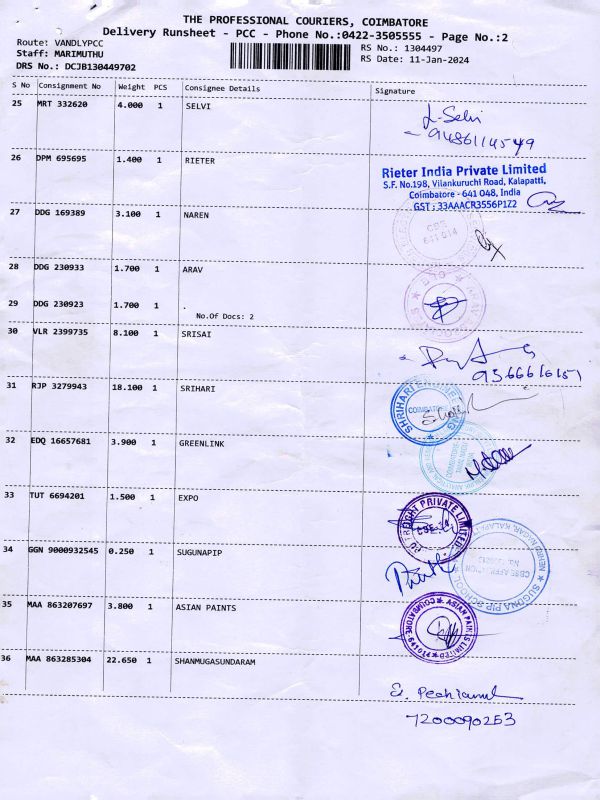 THE PROFESSIONAL COURIERS, COIMBATORE
Delivery Runsheet - PCC - Phone No.:0422-3505555 - Page No.:2
Route: VANDLYPCC
Staff: MARIMUTHU
DRS No.: DCJB130449702
RS No.: 1304497
RS Date: 11-Jan-2024
S No Consignment No Weight PCS Consignee Details Signature
25 MRT 332620 4.000 1 SELVI
Selvi
9486114549
26 DPM 695695 1.400 1 RIETER
Rieter India Private Limited
S.F. No.198, Vilankuruchi Road, Kalapatti,
Coimbatore - 641 048, India
GST : 33AAACR3556P1Z2
27 DDG 169389 3.100 1 NAREN
CBE
641 014
28 DDG 230933 1.700 1 ARAV
29 DDG 230923 1.700 1
No.Of Docs: 2
30 VLR 2399735 8.100 1 SRISAI
9366616151
31 RJP 3279943 18.100 1 SRIHARI
SHRIHARI
32 EDQ 16657681 3.900 1 GREENLINK
33 TUT 6694201 1.500 1 EXPO
FREIGHT PRIVATE LIMITED
34 GGN 9000932545 0.250 1 SUGUNAPIP
SUGUNA PIP SCHOOL
NEHRU NAGAR, KALAPATTI
CBSE AFFILIATION
35 MAA 863207697 3.800 1 ASIAN PAINTS
ASIAN PAINTS LIMITED
COIMBATORE
36 MAA 863285304 22.650 1 SHANMUGASUNDARAM
7200090253